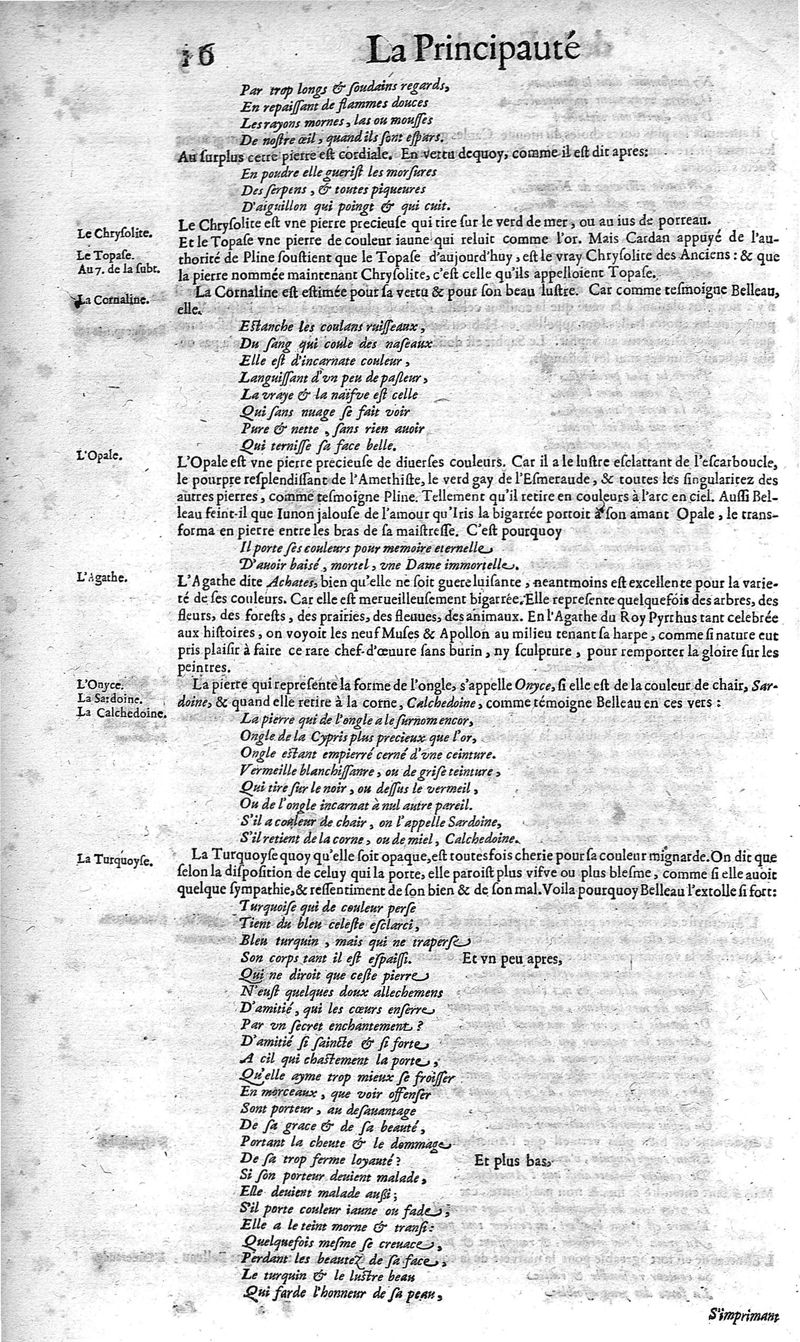 16 La Principauté
Par trop longs & ſoudains regards,
En repaiſſant de flammes douces
Les rayons mornes, las ou mouſſes
De noſtre œil, quand ils ſont eſpars.
Au ſurplus cette pierre eſt cordiale. En vertu dequoy, comme il eſt dit apres:
En poudre elle gueriſt les morſures
Des ſerpens, & toutes piqueures
D'aiguillon qui poingt & qui cuit.
Le Chryſolite.
Le Chryſolite eſt vne pierre precieuse qui tire ſur le verd de mer, ou au ius de porreau.
Le Topaſe.
Au 7. de la ſubt.
Et le Topaſe vne pierre de couleur iaune qui reluit comme l'or. Mais Cardan appuyé de l'au-
thorité de Pline ſouſtient que le Topaſe d'aujourd'huy, eſt le vray Chryſolite des Anciens: & que
la pierre nommée maintenant Chryſolite, c'eſt celle qu'ils appelloient Topaſe.
La Cornaline.
La Cornaline eſt eſtimée pour ſa vertu & pour ſon beau luſtre. Car comme teſmoigne Belleau,
elle.
Eſtanche les coulans ruiſſeaux,
Du ſang qui coule des naſeaux
Elle eſt d'incarnate couleur,
Languiſſant d'vn peu de paſleur,
La vraye & la naïfve eſt celle
Qui ſans nuage ſe fait voir
Pure & nette, ſans rien auoir
Qui terniſſe ſa face belle.
L'Opale.
L'Opale eſt vne pierre precieuse de diuerſes couleurs. Car il a le luſtre eſclattant de l'eſcarboucle,
le pourpre reſplendiſſant de l'Amethiſte, le verd gay de l'Eſmeraude, & toutes les ſingularitez des
autres pierres, comme teſmoigne Pline. Tellement qu'il retire en couleurs à l'arc en ciel. Auſſi Bel-
leau feint-il que Iunon jalouſe de l'amour qu'Iris la bigarrée portoit à ſon amant Opale, le trans-
forma en pierre entre les bras de ſa maiſtreſſe. C'eſt pourquoy
Il porte ſes couleurs pour memoire eternelle
D'auoir baiſé, mortel, vne Dame immortelle.
L'Agathe.
L'Agathe dite Achates, bien qu'elle ne ſoit guere luiſante, neantmoins eſt excellente pour la varie-
té de ſes couleurs. Car elle eſt merueilleuſement bigarrée. Elle repreſente quelquefois des arbres, des
fleurs, des foreſts, des prairies, des fleuues, des animaux. En l'Agathe du Roy Pyrrhus tant celebrée
aux hiſtoires, on voyoit les neuf Muſes & Apollon au milieu tenant ſa harpe, comme ſi nature eut
pris plaiſir à faire ce rare chef-d'œuure ſans burin, ny ſculpture, pour remporter la gloire ſur les
peintres.
L'Onyce.
La Sardoine.
La Calchedoine.
La pierre qui repreſente la forme de l'ongle, s'appelle Onyce, ſi elle eſt de la couleur de chair, Sar-
doine, & quand elle retire à la corne, Calchedoine, comme témoigne Belleau en ces vers:
La pierre qui de l'ongle a le ſurnom encor,
Ongle de la Cypris plus precieux que l'or,
Ongle eſtant empierré cerné d'vne ceinture.
Vermeille blanchiſſante, ou de griſe teinture,
Qui tire ſur le noir, ou deſſus le vermeil,
Ou de l'ongle incarnat à nul autre pareil.
S'il a couleur de chair, on l'appelle Sardoine,
S'il retient de la corne, ou de miel, Calchedoine.
La Turquoyſe.
La Turquoyſe quoy qu'elle ſoit opaque, eſt toutesfois cherie pour ſa couleur mignarde. On dit que
ſelon la diſpoſition de celuy qui la porte, elle paroiſt plus vifve ou plus bleſme, comme ſi elle auoit
quelque ſympathie, & reſſentiment de ſon bien & de ſon mal. Voila pourquoy Belleau l'extolle ſi fort:
Turquoiſe qui de couleur perſe
Tient du bleu celeſte eſclarci,
Bleu turquin, mais qui ne traperſe
Son corps tant il eſt eſpaiſſi. Et vn peu apres,
Qui ne diroit que ceſte pierre
N'euſt quelques doux allechemens
D'amitié, qui les cœurs enſerre
Par vn ſecret enchantement?
D'amitié ſi ſaincte & ſi forte
A cil qui chaſtement la porte,
Qu'elle ayme trop mieux ſe froiſſer
En morceaux, que voir offenſer
Sont porteur, au deſauantage
De ſa grace & de ſa beauté,
Portant la cheute & le dommage
De ſa trop ferme loyauté? Et plus bas,
Si ſon porteur deuient malade,
Elle deuient malade auſſi;
S'il porte couleur iaune ou fade,
Elle a le teint morne & tranſi:
Quelquefois meſme ſe creuace,
Perdant les beautez de ſa face,
Le turquin & le luſtre beau
Qui farde l'honneur de ſa peau,
S'imprimant